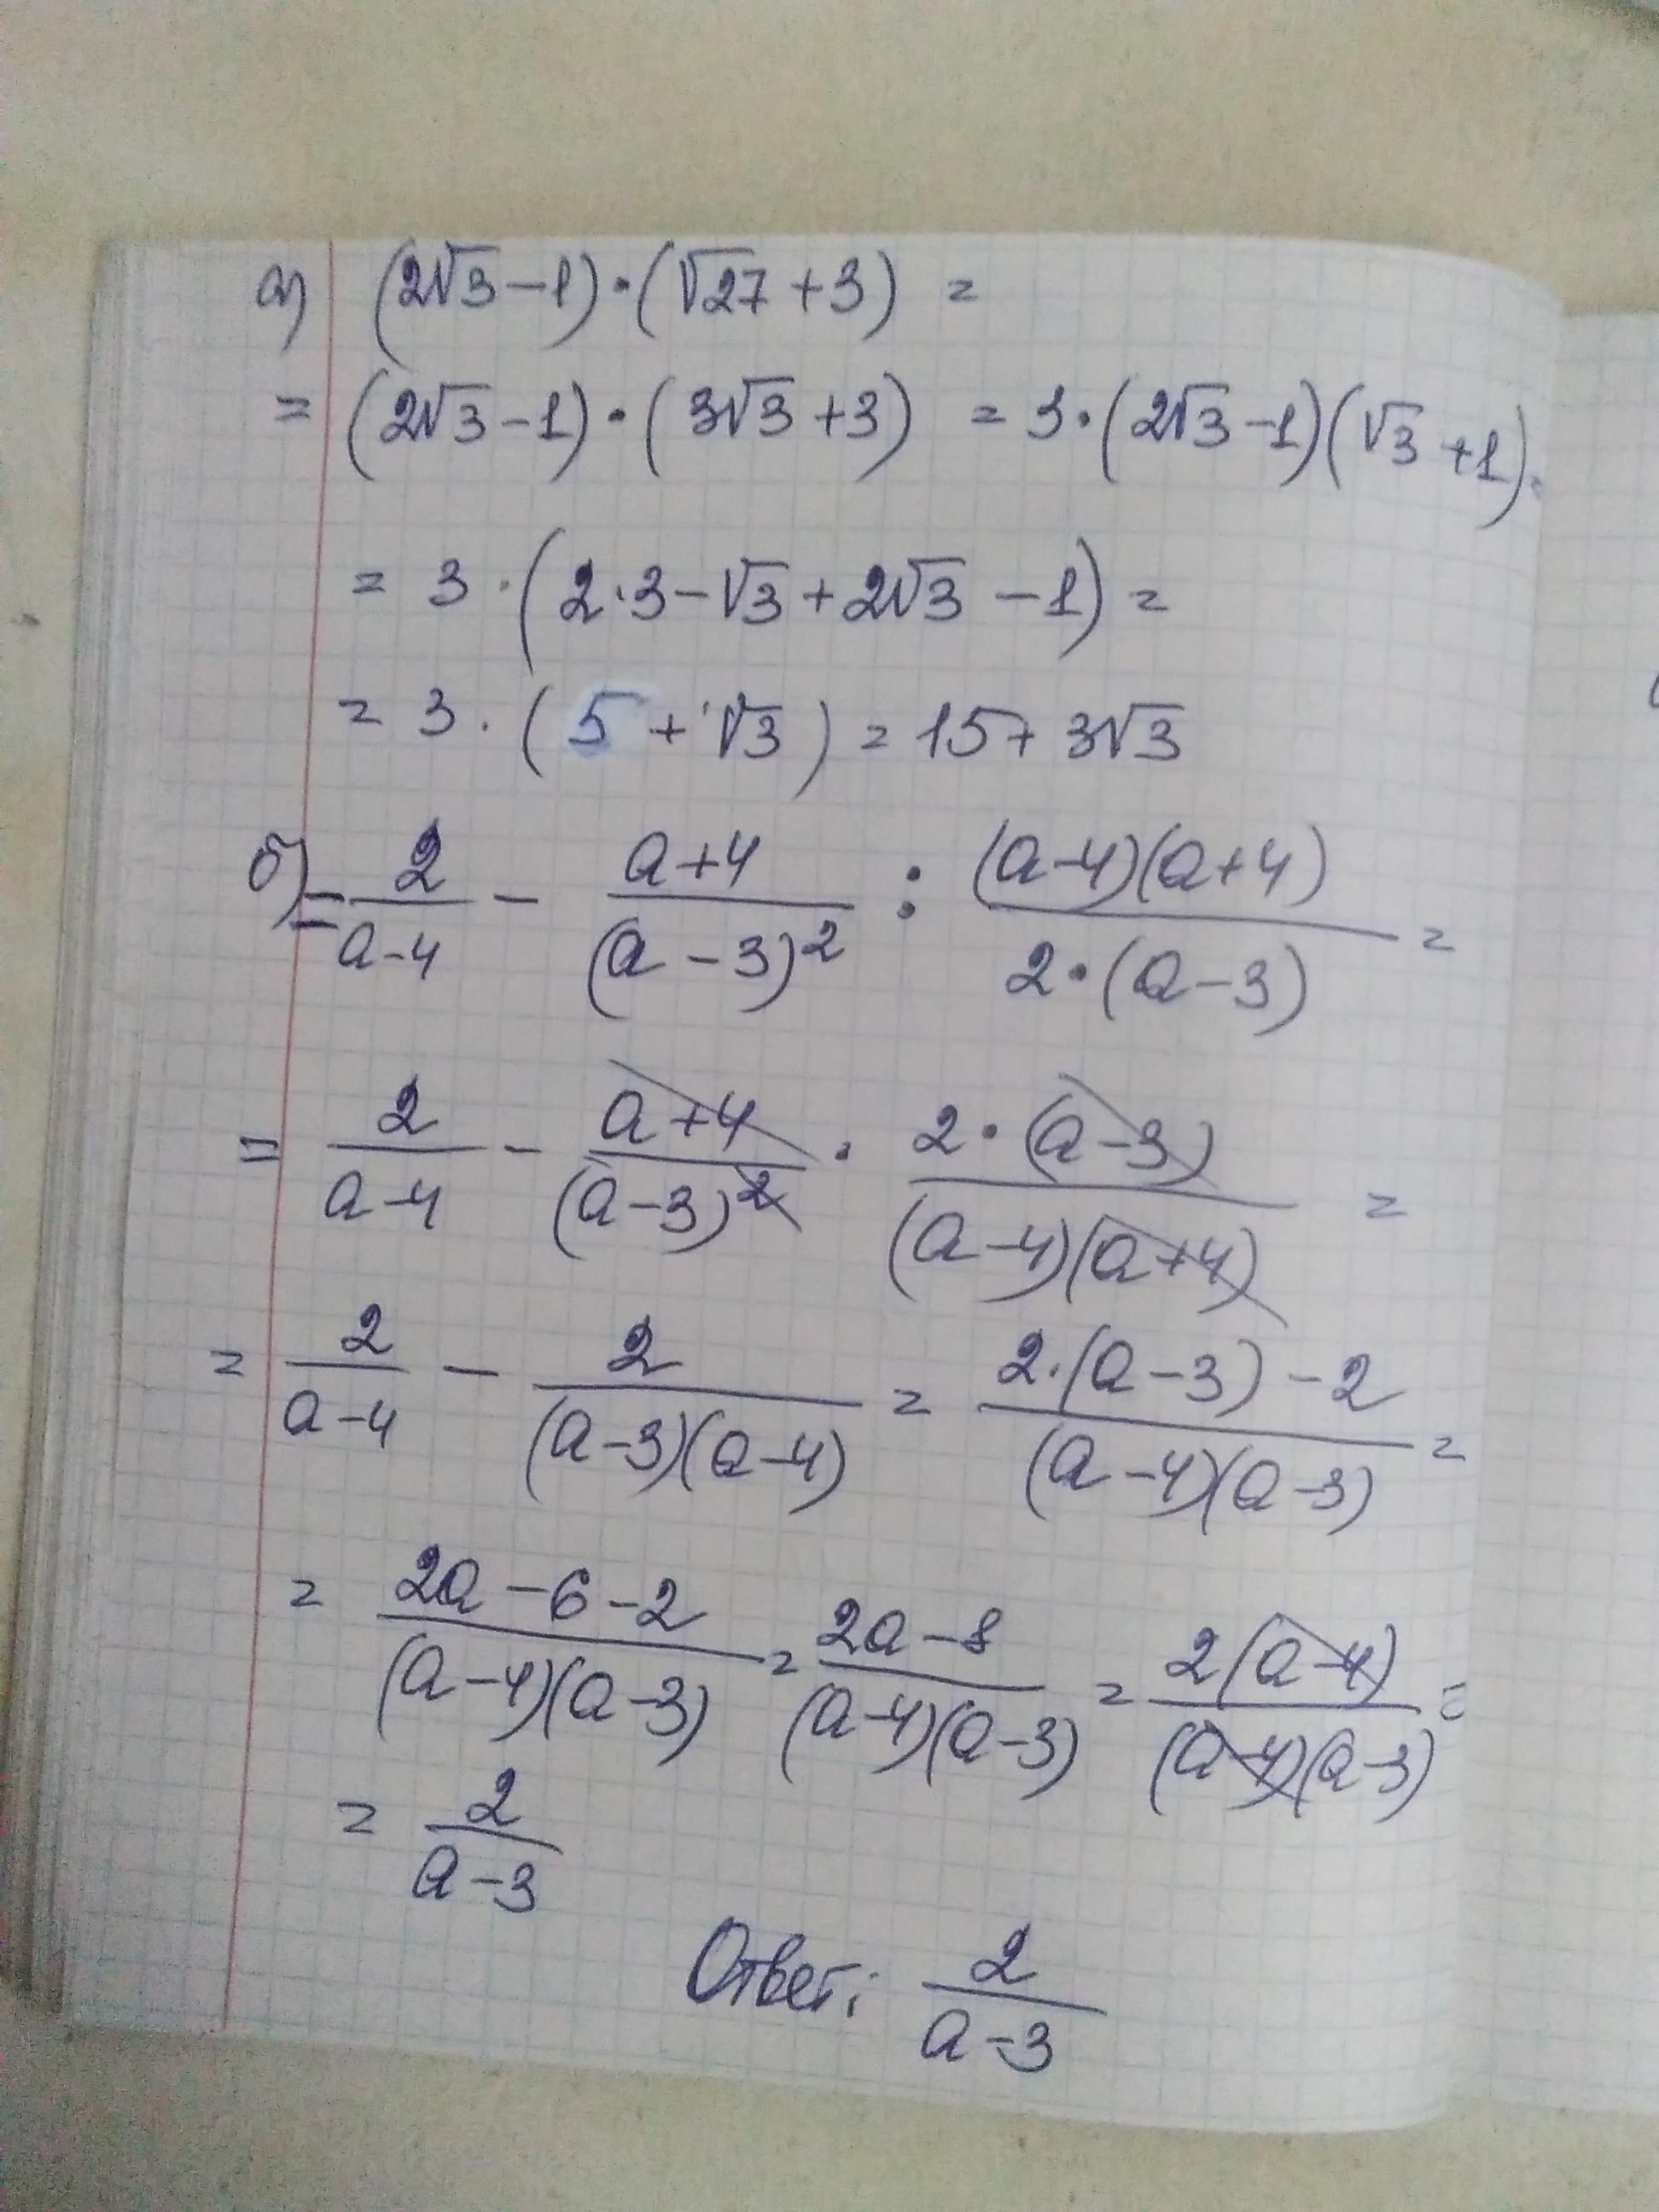 а) (2√3-1)·(√27+3) =
= (2√3-1)·(3√3+3) = 3·(2√3-1)(√3+1) =
= 3·(2·3-√3+2√3-1) =
= 3·(5+√3) = 15+3√3
б) = 2/(a-4) - (a+4)/(a-3)² : (a-4)(a+4)/(2·(a-3)) =
= 2/(a-4) - (a+4)/(a-3)² · 2·(a-3)/((a-4)(a+4)) =
= 2/(a-4) - 2/((a-3)(a-4)) = (2·(a-3)-2)/((a-4)(a-3)) =
= (2a-6-2)/((a-4)(a-3)) = (2a-8)/((a-4)(a-3)) = 2(a-4)/((a-4)(a-3)) =
= 2/(a-3)
Ответ: 2/(a-3)